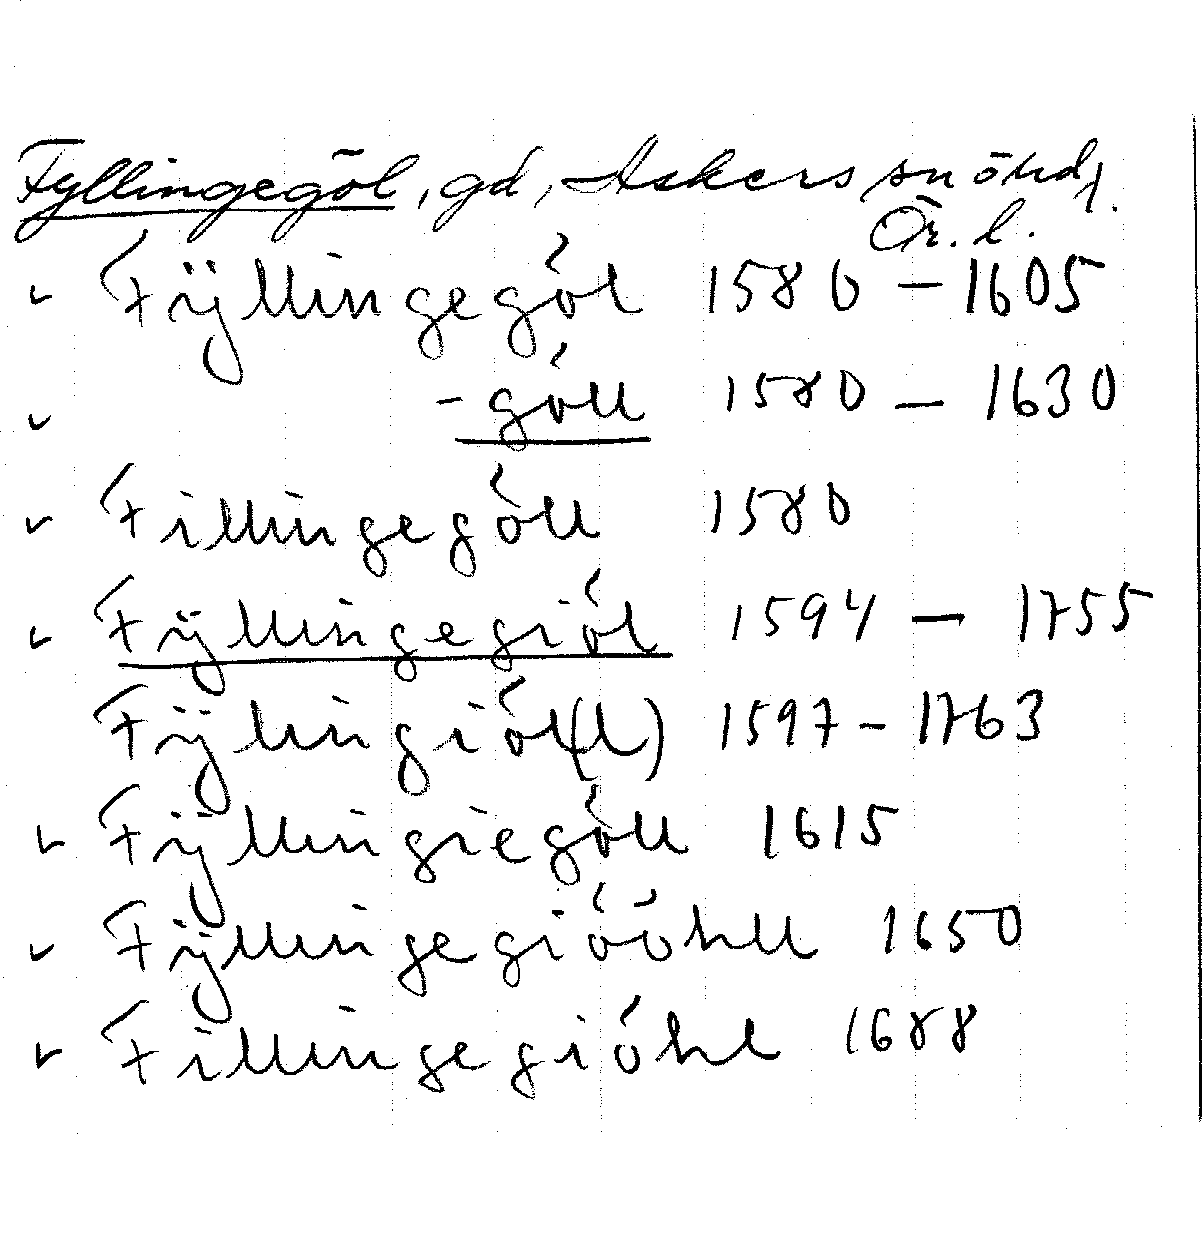 Fyllingegöl, gd, Askers sn ö hd,
Ör. l.
Fÿllingegó́l 1580 – 1605
- góll 1580 – 1630
Fillingególl 1580
Fÿllingegiól 1594 – 1755
Fÿllingiól(l) 1597 – 1763
Fÿllingiególl 1615
Fÿllingegióóhll 1650
Fillingegióhl 1688